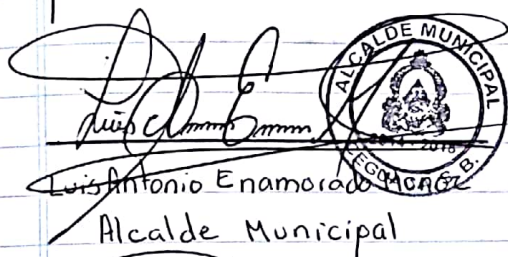 Luis
ALCALDE MUNICIPAL
2014 - 2018
S. B.
Luis Antonio Enamorado
Alcalde Municipal